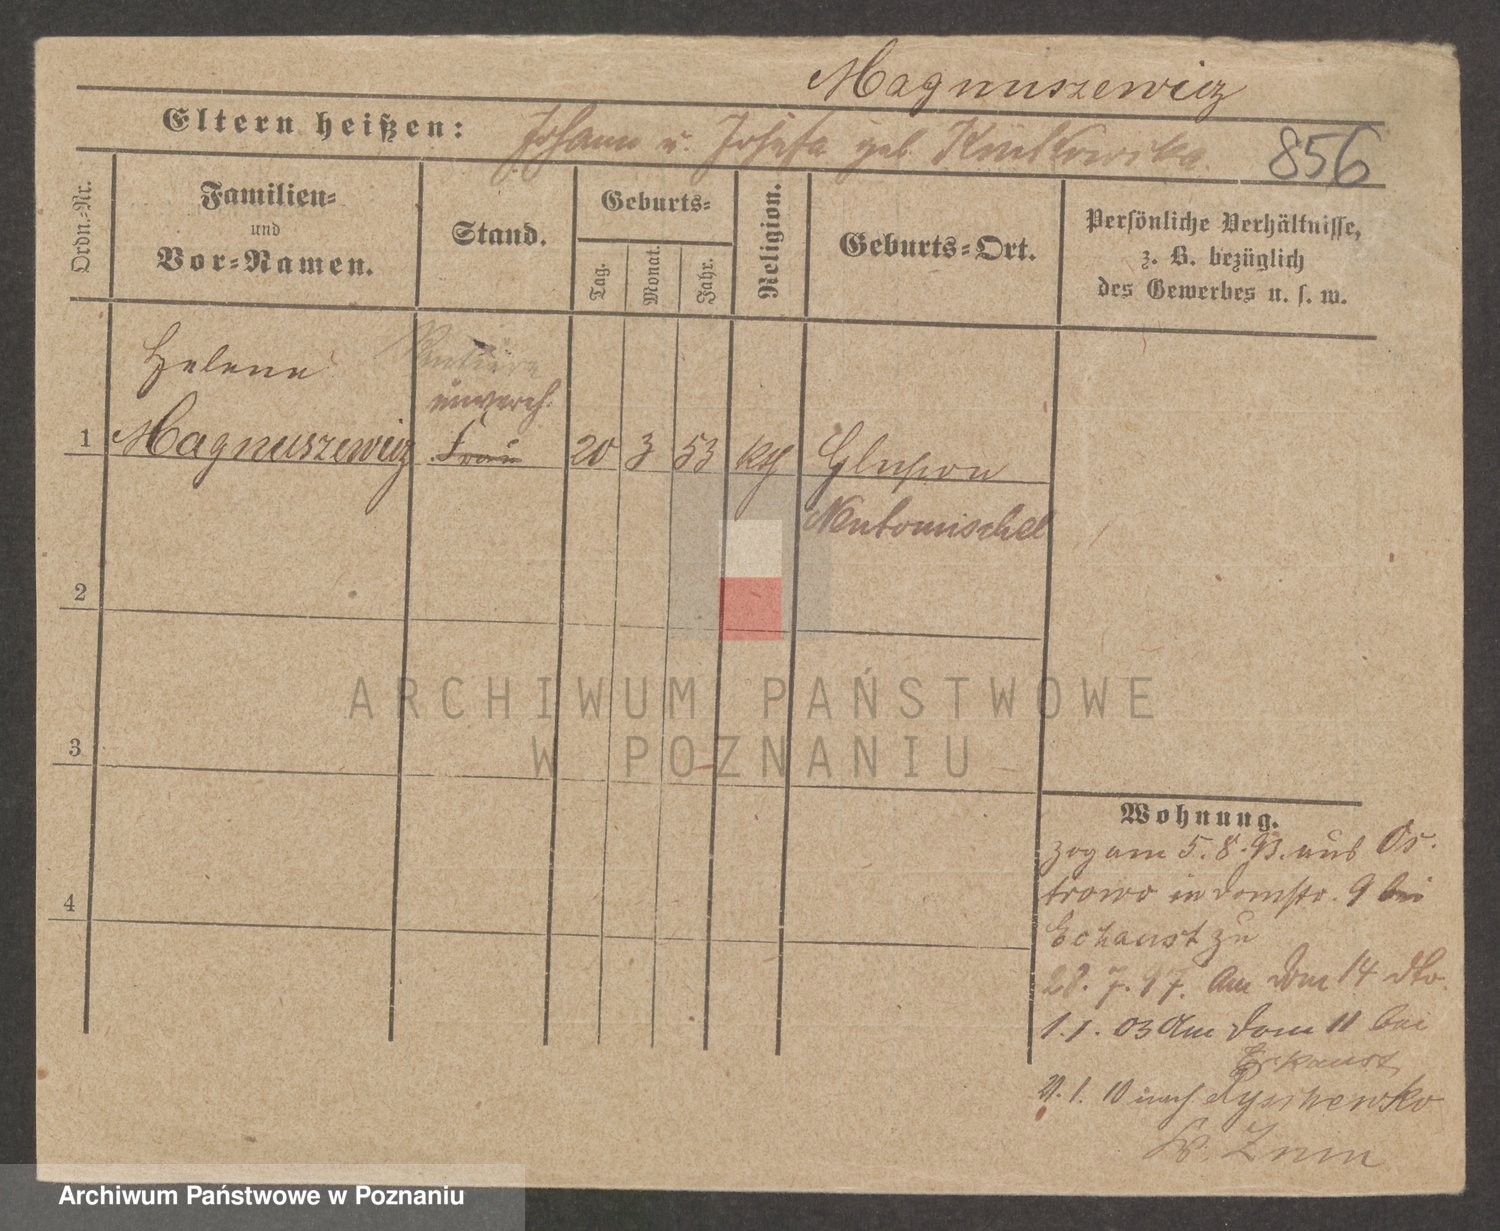 Magnuszewicz
Eltern heißen: Johann u. Josefa geb.
856
Ordn.-Nr.
Familien-
und
Vor-Namen.
Stand.
Geburts-
Tag.
Monat.
Jahr.
Religion.
Geburts-Ort.
Persönliche Verhältnisse,
z. B. bezüglich
des Gewerbes u. s. w.
Helene
unvereh.
1 Magnuszewicz Frau 20 3 53 kth Glupon
Neutomischel
2
3
4
Wohnung.
zog am 5. 8. 93. aus Os-
trowo in Domstr. 9 bei
Echaust zu
28. 7. 97. Am Dom 14 dto.
1. 1. 03 Am Dom 11 bei
Echaust
21. 1. 10 nach
Kr. Znin
ARCHIWUM PAŃSTWOWE
W POZNANIU
Archiwum Państwowe w Poznaniu